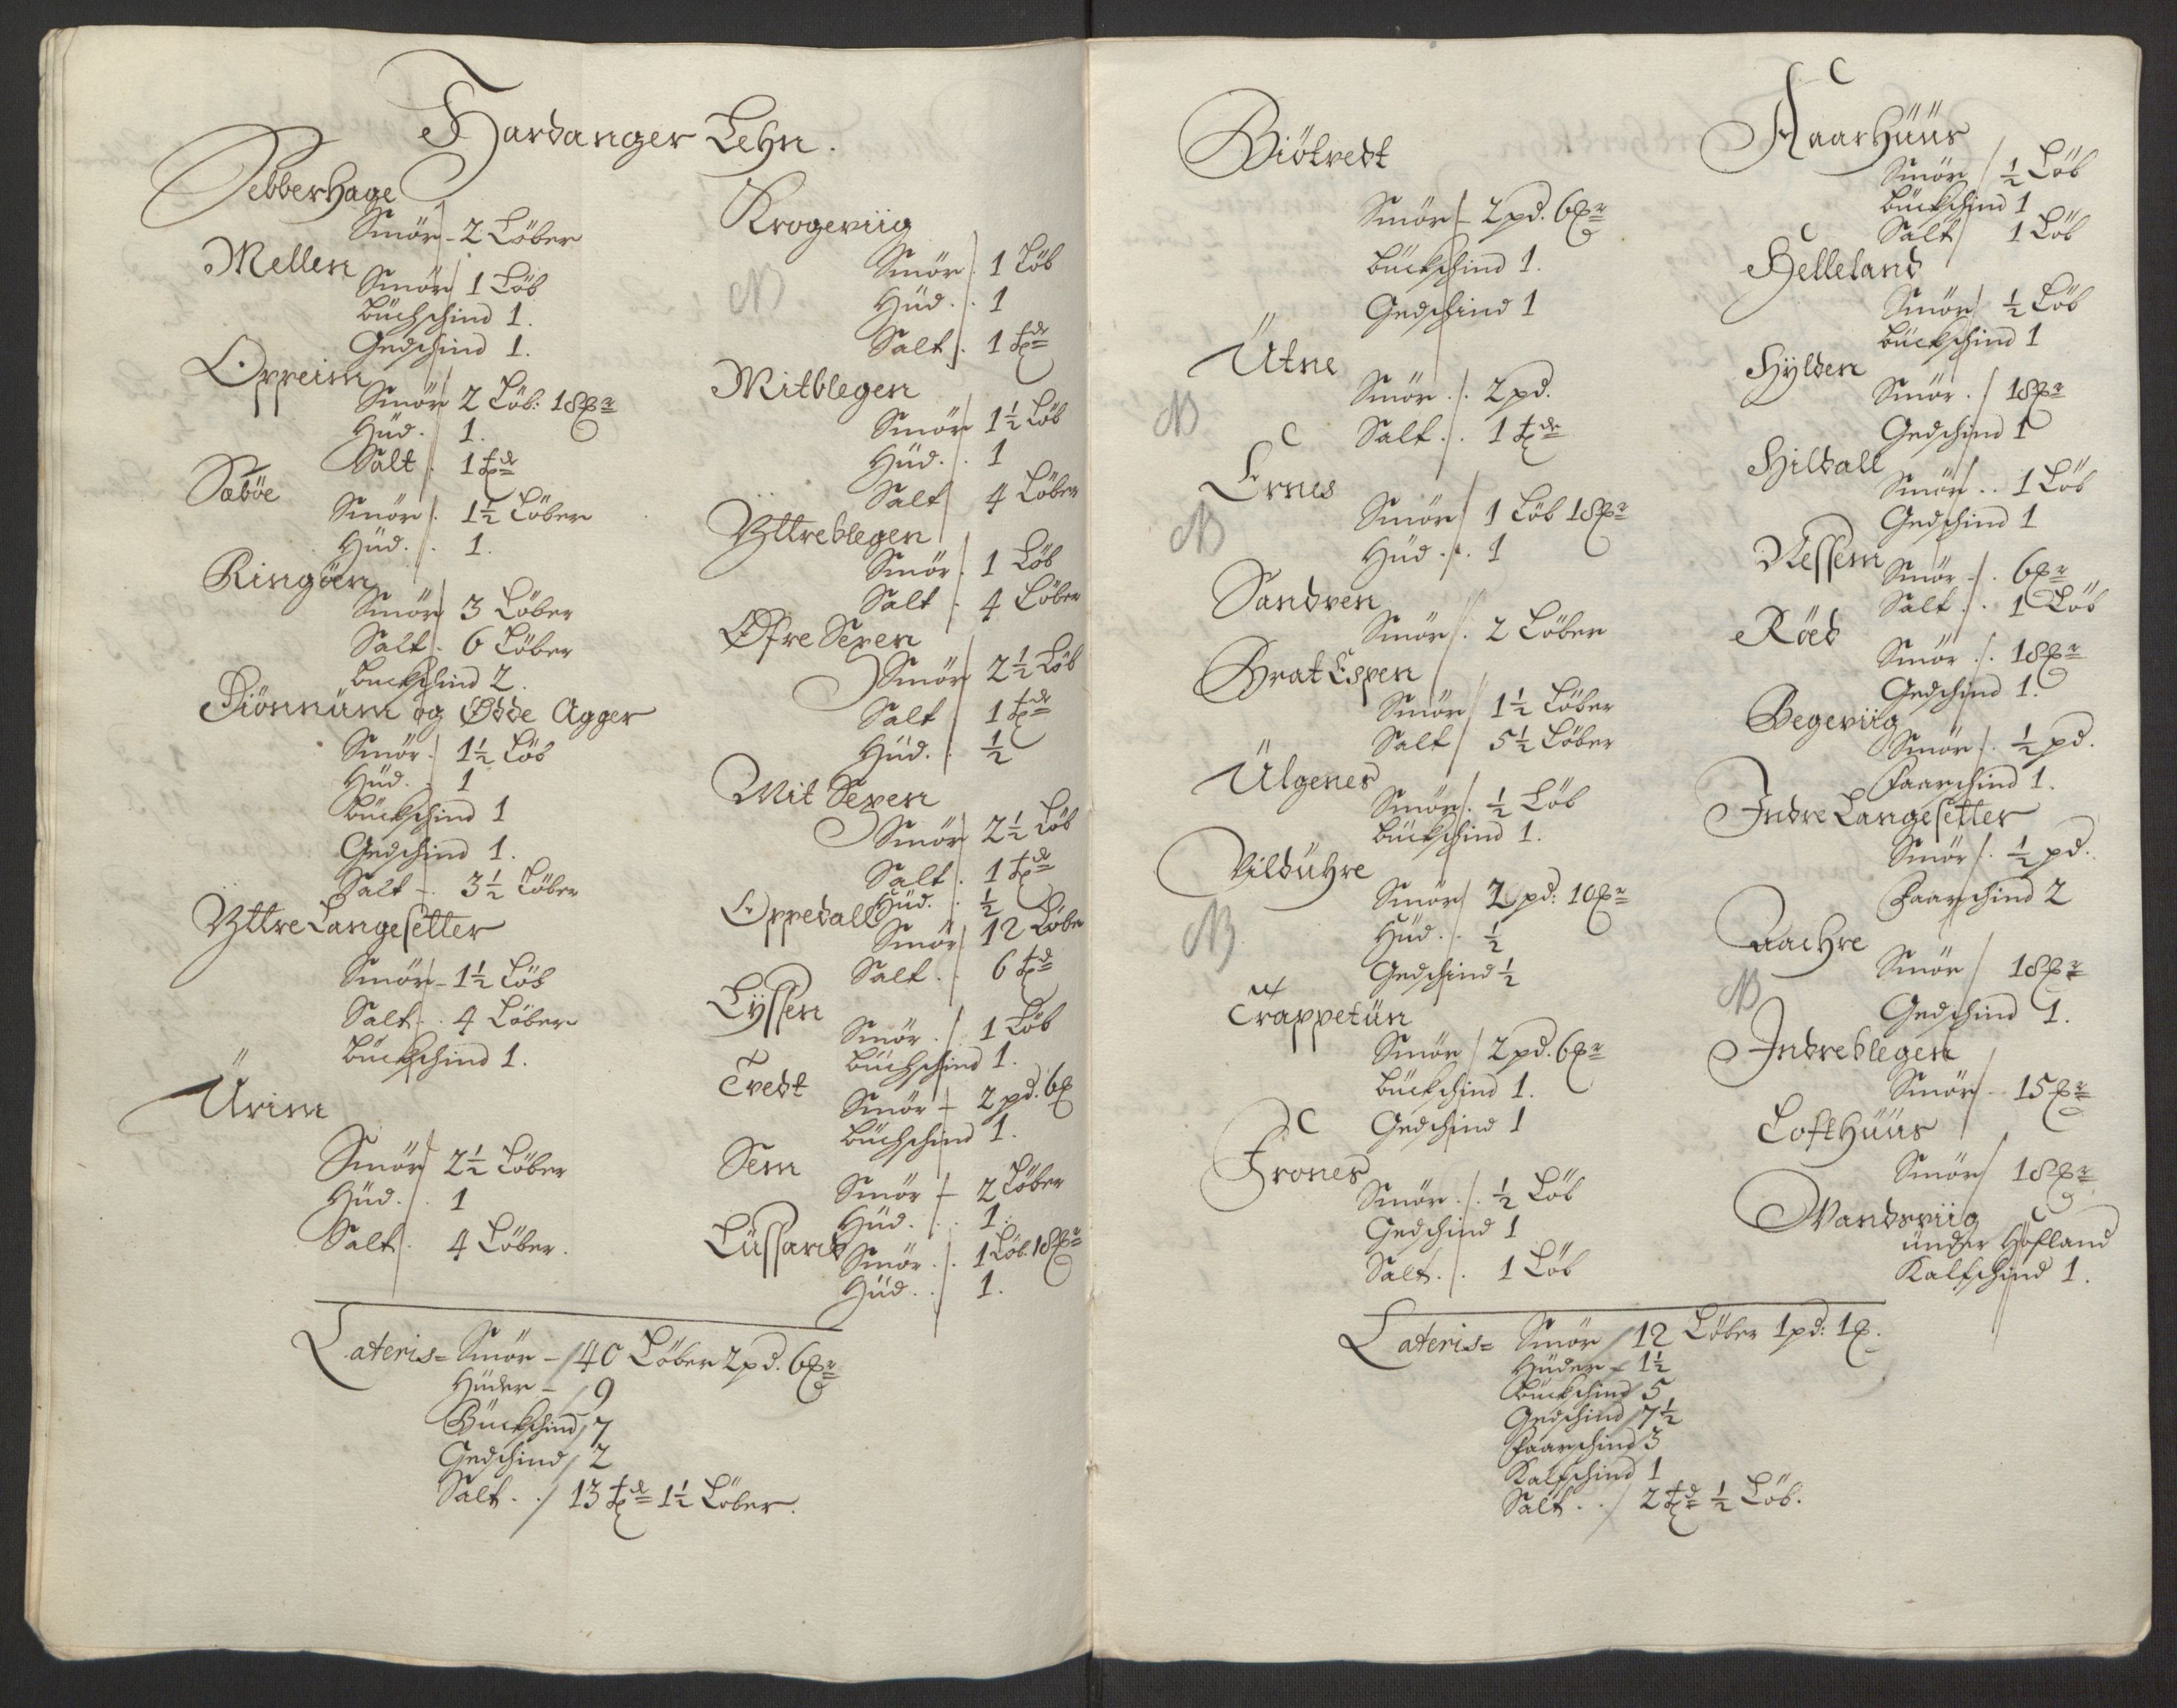 Hardanger Lehn.
Pebberhage
Smör - 2 Löber
Mellen
Smör 1 Löb
Buchschind 1.
Gedschind 1.
Oppeim
Smör 2 Löb: 18 ℔r
Hüd. 1.
Salt. 1 tde
Sæböe
Smör. 1½ Löber
Hüd. . 1.
Ringöen
Smör 3 Löber
Salt. 6 Löber
Buckschind 2.
Diönnüm og Ødde Agger
Smör. 1½ Löb
Hüd. . 1
Bückschind 1
Gedschind 1.
Salt - . 3½ Löber
Yttre Langesetter
Smör - 1½ Löb
Salt. . 4 Löber
Bückschind 1.
Ürim
Smör 2½ Löber
Hüd. . 1
Salt. 4 Löber.
Krogeviig
Smör. 1 Löb
NB Hüd. . 1
Salt. 1 tde
Mitblegen
Smör 1½ Löb
Hüd. . 1
Salt 4 Löber
Yttreblegen
Smör. 1 Löb
Salt . 4 Löber
Øfre Sexen
Smör 2½ Löb
Salt 1 tde
Hüd. . ½
Mit Sexen
Smör 2½ Löb
Salt. 1 tde
Hüd. . ½
Oppedall
Smör 12 Löbr
Salt. . 6 td
Lyssen
Smör. . 1 Löb
Büchschind 1.
Tvedt
Smör - 2 pd. 6 ℔
Büchschind 1.
Sem
Smör - 2 Löber
Hüd. . . 1.
Lüssand
Smör. . 1 Löb. 18 ℔r
Hüd. . 1.
Lateris = Smör - 40 Löber 2 pd. 6 ℔r
Hüder - 9
Bückschind 7
Gedschind 2
Salt. . 13 tde 1½ Löber.
Biötvedt
Smör - 2 pd. 6 ℔r
Bückschind 1.
Gedschind 1
Ütne
Smör. . 2 pd.
NB Salt. . 1 tde
Ernes
Smör 1 Löb 18 ℔r
NB Hüd. . 1
Sandven
Smör. 2 Löber
Brat Espen
Smör 1½ Löber
Salt 5½ Löber
Ülgenes
Smör. ½ Löb
Bückschind 1.
Vildühre
Smör 2 pd: 10 ℔r
NB Hüd. . ½
Gedschind ½
Trappetün
Smör 2 pd. 6 ℔r
Bückschind 1.
Gedschind 1
Frones
Smör. . ½ Löb
Gedschind 1
Salt. . 1 Löb
Aarhüüs
Smör ½ Löb
Bückschind 1
Salt 1 Löb
Helleland
Smör ½ Löb
Bückschind 1
Hÿlden
Smör. 18 ℔r
Gedschind 1
Hildall
Smör. . 1 Löb
Gedschind 1
Nessem
Smör - . 6 ℔r
Salt. . 1 Löb
Röed
Smör. . 18 ℔r
Gedschind 1.
Begeviig
Smör. ½ pd.
Faarschind 1.
Indre Langesetter
Smör. ½ pd.
Faarschind 2
Aachre
Smör 18 ℔r
NB Gedschind 1.
Indreblegen
Smör - 15 ℔r
Lofthüüs
Smör 18 ℔r
Wandsviig
under Hofland
Kalfschind 1.
Lateris = Smör 12 Löber 1 pd: 1 ℔.
Hüder - 1½
Bückschind 5
Gedschind 7½
Faarschind 3
Kalfschind 1
Salt. . 2 td ½ Löb.